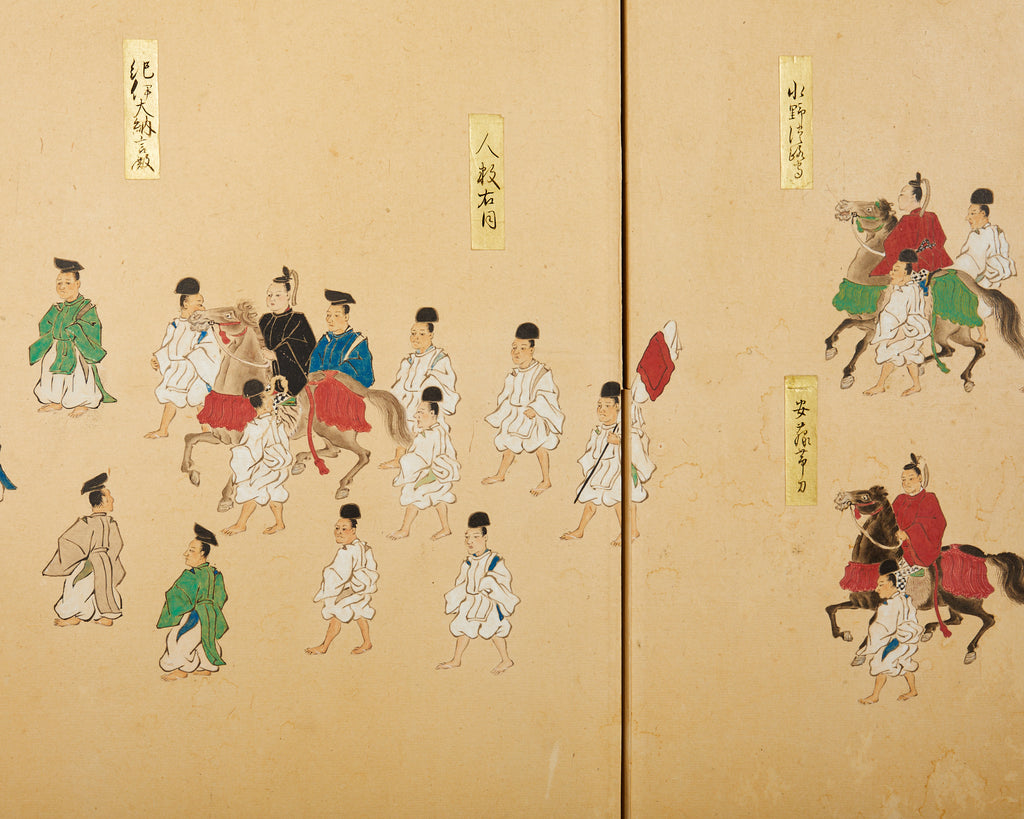 水野淡路守
安藤帯刀
人数右同
紀伊大納言殿